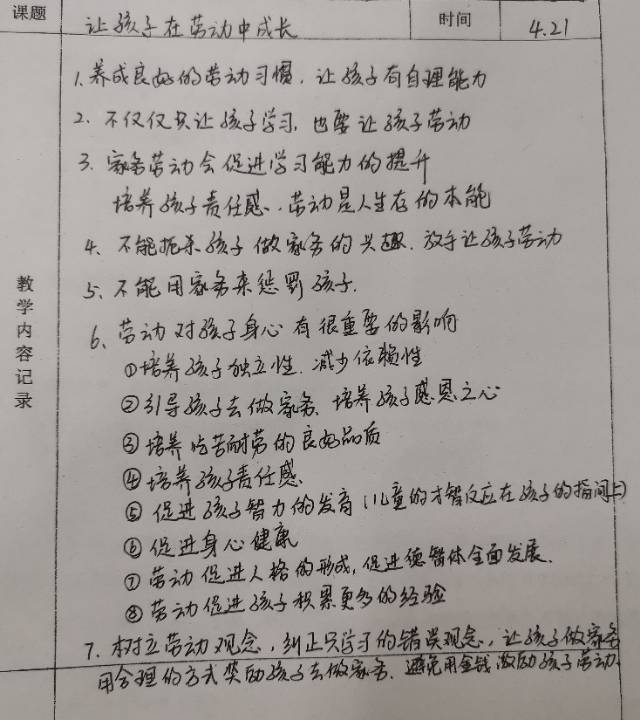 课题 让孩子在劳动中成长 时间 4.21
教学内容记录
1.养成良好的劳动习惯，让孩子有自理能力
2、不仅仅只让孩子学习，也要让孩子劳动
3、家务劳动会促进学习能力的提升
培养孩子责任感、劳动是人生存的本能
4、不能扼杀孩子做家务的兴趣，放手让孩子劳动
5、不能用家务来惩罚孩子.
6、劳动对孩子身心有很重要的影响
①培养孩子独立性，减少依赖性
②引导孩子去做家务、培养孩子感恩之心
③培养吃苦耐劳的良好品质
④培养孩子责任感、
⑤促进孩子智力的发育（儿童的才智反应在孩子的指间上）
⑥促进身心健康
⑦劳动促进人格的形成，促进德智体全面发展.
⑧劳动促进孩子积累更多的经验
7、树立劳动观念，纠正只学习的错误观念，让孩子做家务
用合理的方式奖励孩子去做家务、避免用金钱激励孩子劳动.